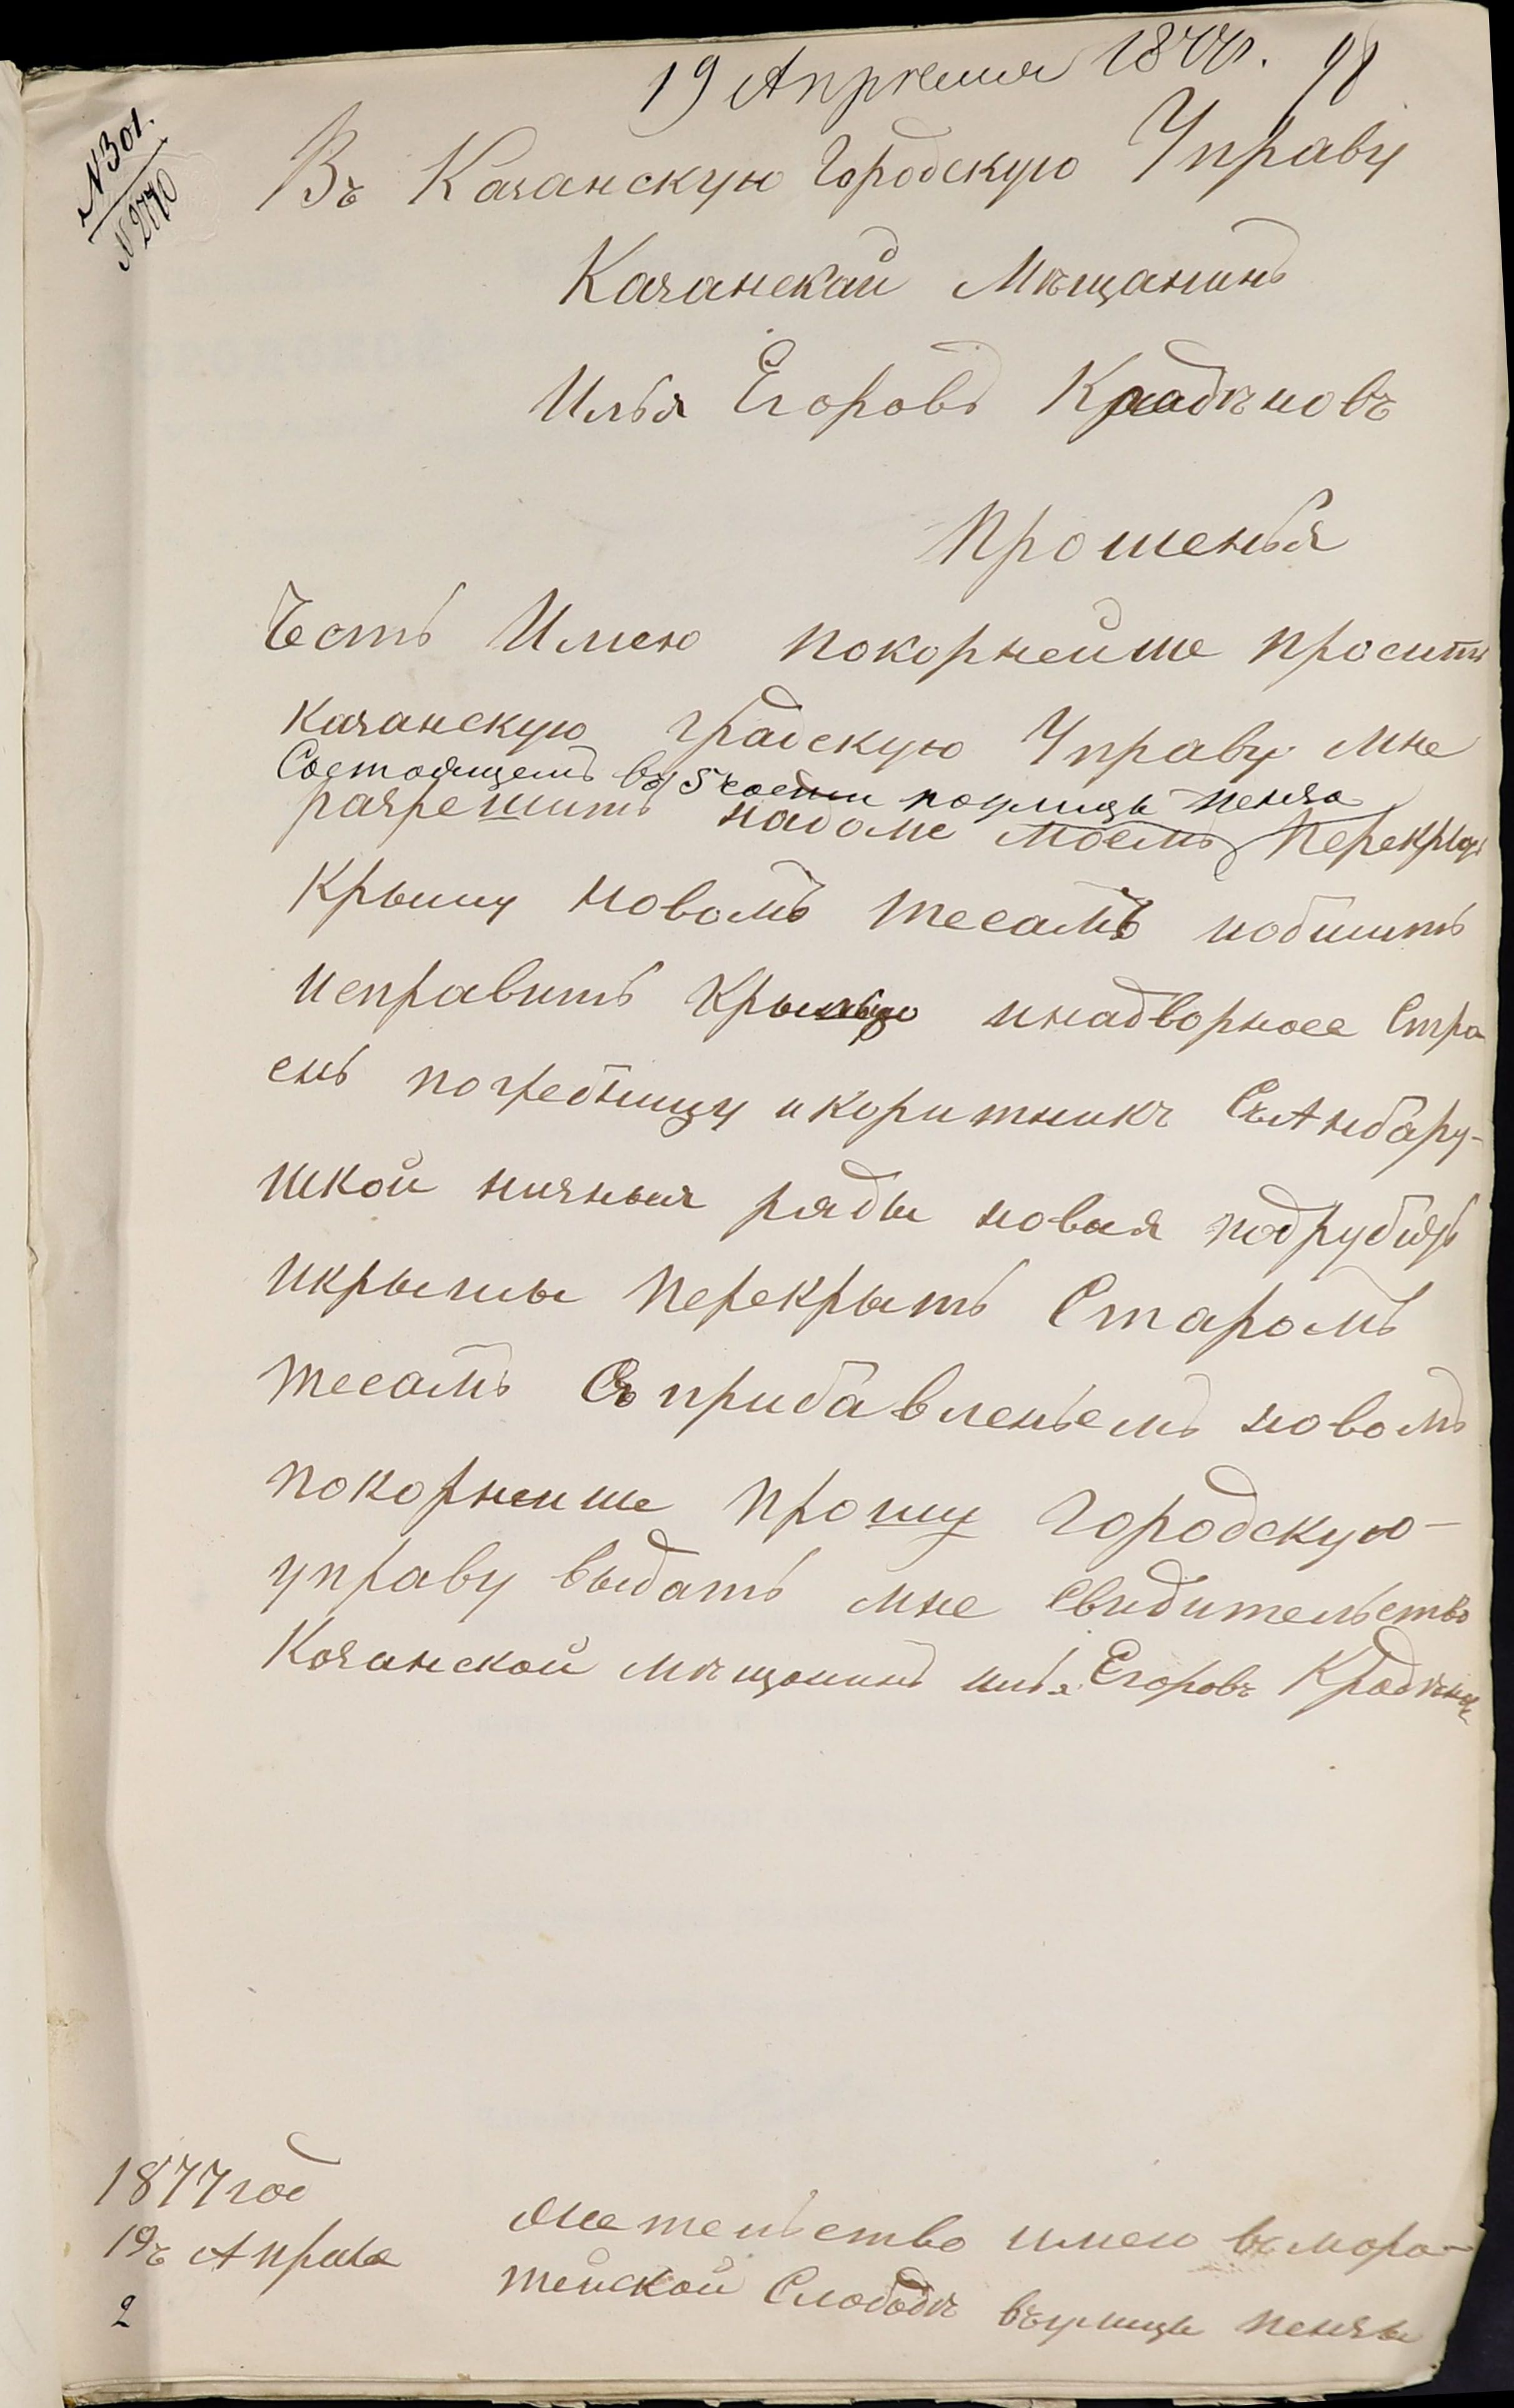 19 Апреля 1877г. 98
№301.
№2770
Въ Казанскую Городскую Управу
Казанскай Мѣщанинъ
Илья Егоровъ Крадѣновъ
Прошенья
Честь Имею покорнейше просить
казанскую градскую Управу мне
Состоящемъ въ 5 части поулицы пенза
разрешить надоме моемъ перекрыть
крышу новомъ тесамъ иобшить
исправить крыльцо инадворное Стро
ень погребницу икоритникъ СъАмбару-
шкой нижныя ряды новыя подрубить
икрышы перекрыть Старомъ
тесамъ Съ прибавленьемъ новомъ
покорнеише прошу городскую-
управу выдать мне Свидительство
Казанской мѣщанинъ илья Егоровъ Крадѣнов
1877 год
19ъ Апреля
2
жительство имею въ
Слободѣ въулицы пензы